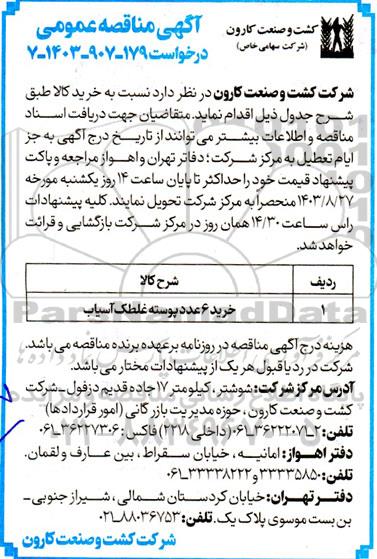 کشت و صنعت کارون
(شرکت سهامی خاص)
آگهی مناقصه عمومی
درخواست ۱۷۹-۹۰۷-۱۴۰۳-۷
شرکت کشت و صنعت کارون در نظر دارد نسبت به خرید کالا طبق
شرح جدول ذیل اقدام نماید. متقاضیان جهت دریافت اسناد
مناقصه و اطلاعات بیشتر می توانند از تاریخ درج آگهی به جز
ایام تعطیل به مرکز شرکت؛ دفاتر تهران و اهواز مراجعه و پاکت
پیشنهاد قیمت خود را حداکثر تا پایان ساعت ۱۴ روز یکشنبه مورخه
۱۴۰۳/۸/۲۷ منحصراً به مرکز شرکت تحویل نمایند. کلیه پیشنهادات
راس ساعت ۱۴/۳۰ همان روز در مرکز شرکت بازگشایی و قرائت
خواهد شد.
ردیف شرح کالا
۱ خرید ۶ عدد پوسته غلطک آسیاب
هزینه درج آگهی مناقصه در روزنامه بر عهده برنده مناقصه می باشد.
شرکت در رد یا قبول هر یک از پیشنهادات مختار می باشد.
آدرس مرکز شرکت: شوشتر، کیلومتر ۱۷ جاده قدیم دزفول - شرکت
کشت و صنعت کارون، حوزه مدیریت بازرگانی (امور قراردادها)
تلفن: ۳۶۲۲۲۰۷۱-۰۶۱ (داخلی ۲۲۱۸) فاکس: ۳۶۲۲۷۳۰۶-۰۶۱
دفتر اهواز: امانیه، خیابان سقراط، بین عارف و لقمان.
تلفن: ۳۳۳۳۵۸۵۰ و ۳۳۳۳۸۲۲۲-۰۶۱
دفتر تهران: خیابان کردستان شمالی، شیراز جنوبی-
بن بست موسوی پلاک یک. تلفن: ۸۸۰۳۶۷۵۳-۰۲۱
شرکت کشت و صنعت کارون